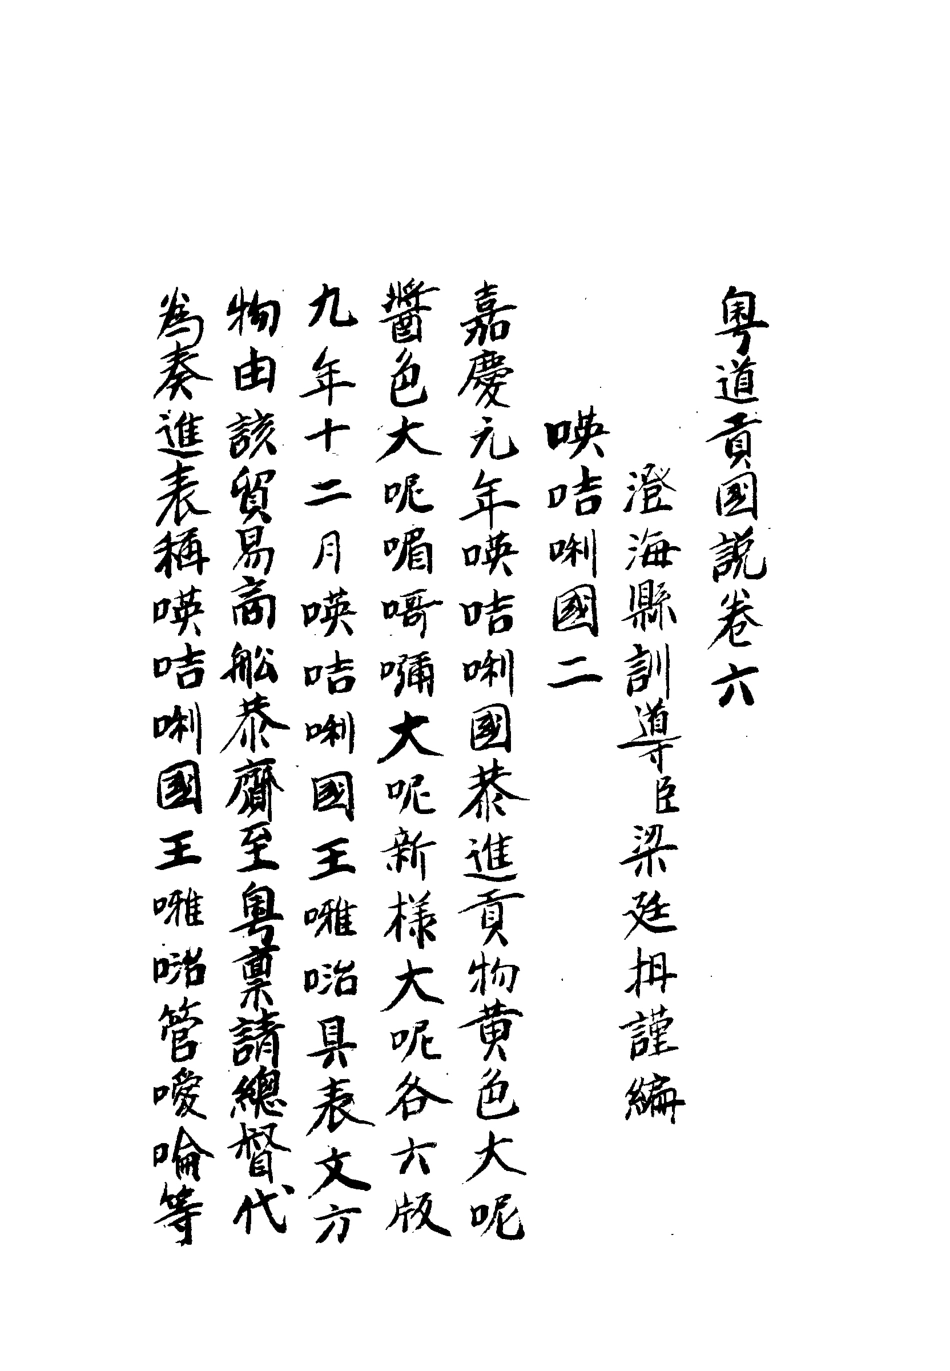 粵道貢國說卷六
澄海縣訓導臣梁廷枏謹編
暎咭唎國二
嘉慶元年暎咭唎國恭進貢物黃色大呢
醬色大呢嵋嗬嚩大呢新樣大呢各六版
九年十二月暎咭唎國王囃嗞具表文方
物由該貿易商舩恭齎至粵稟請總督代
為奏進表稱暎咭唎國王囃嗞管噯喻等